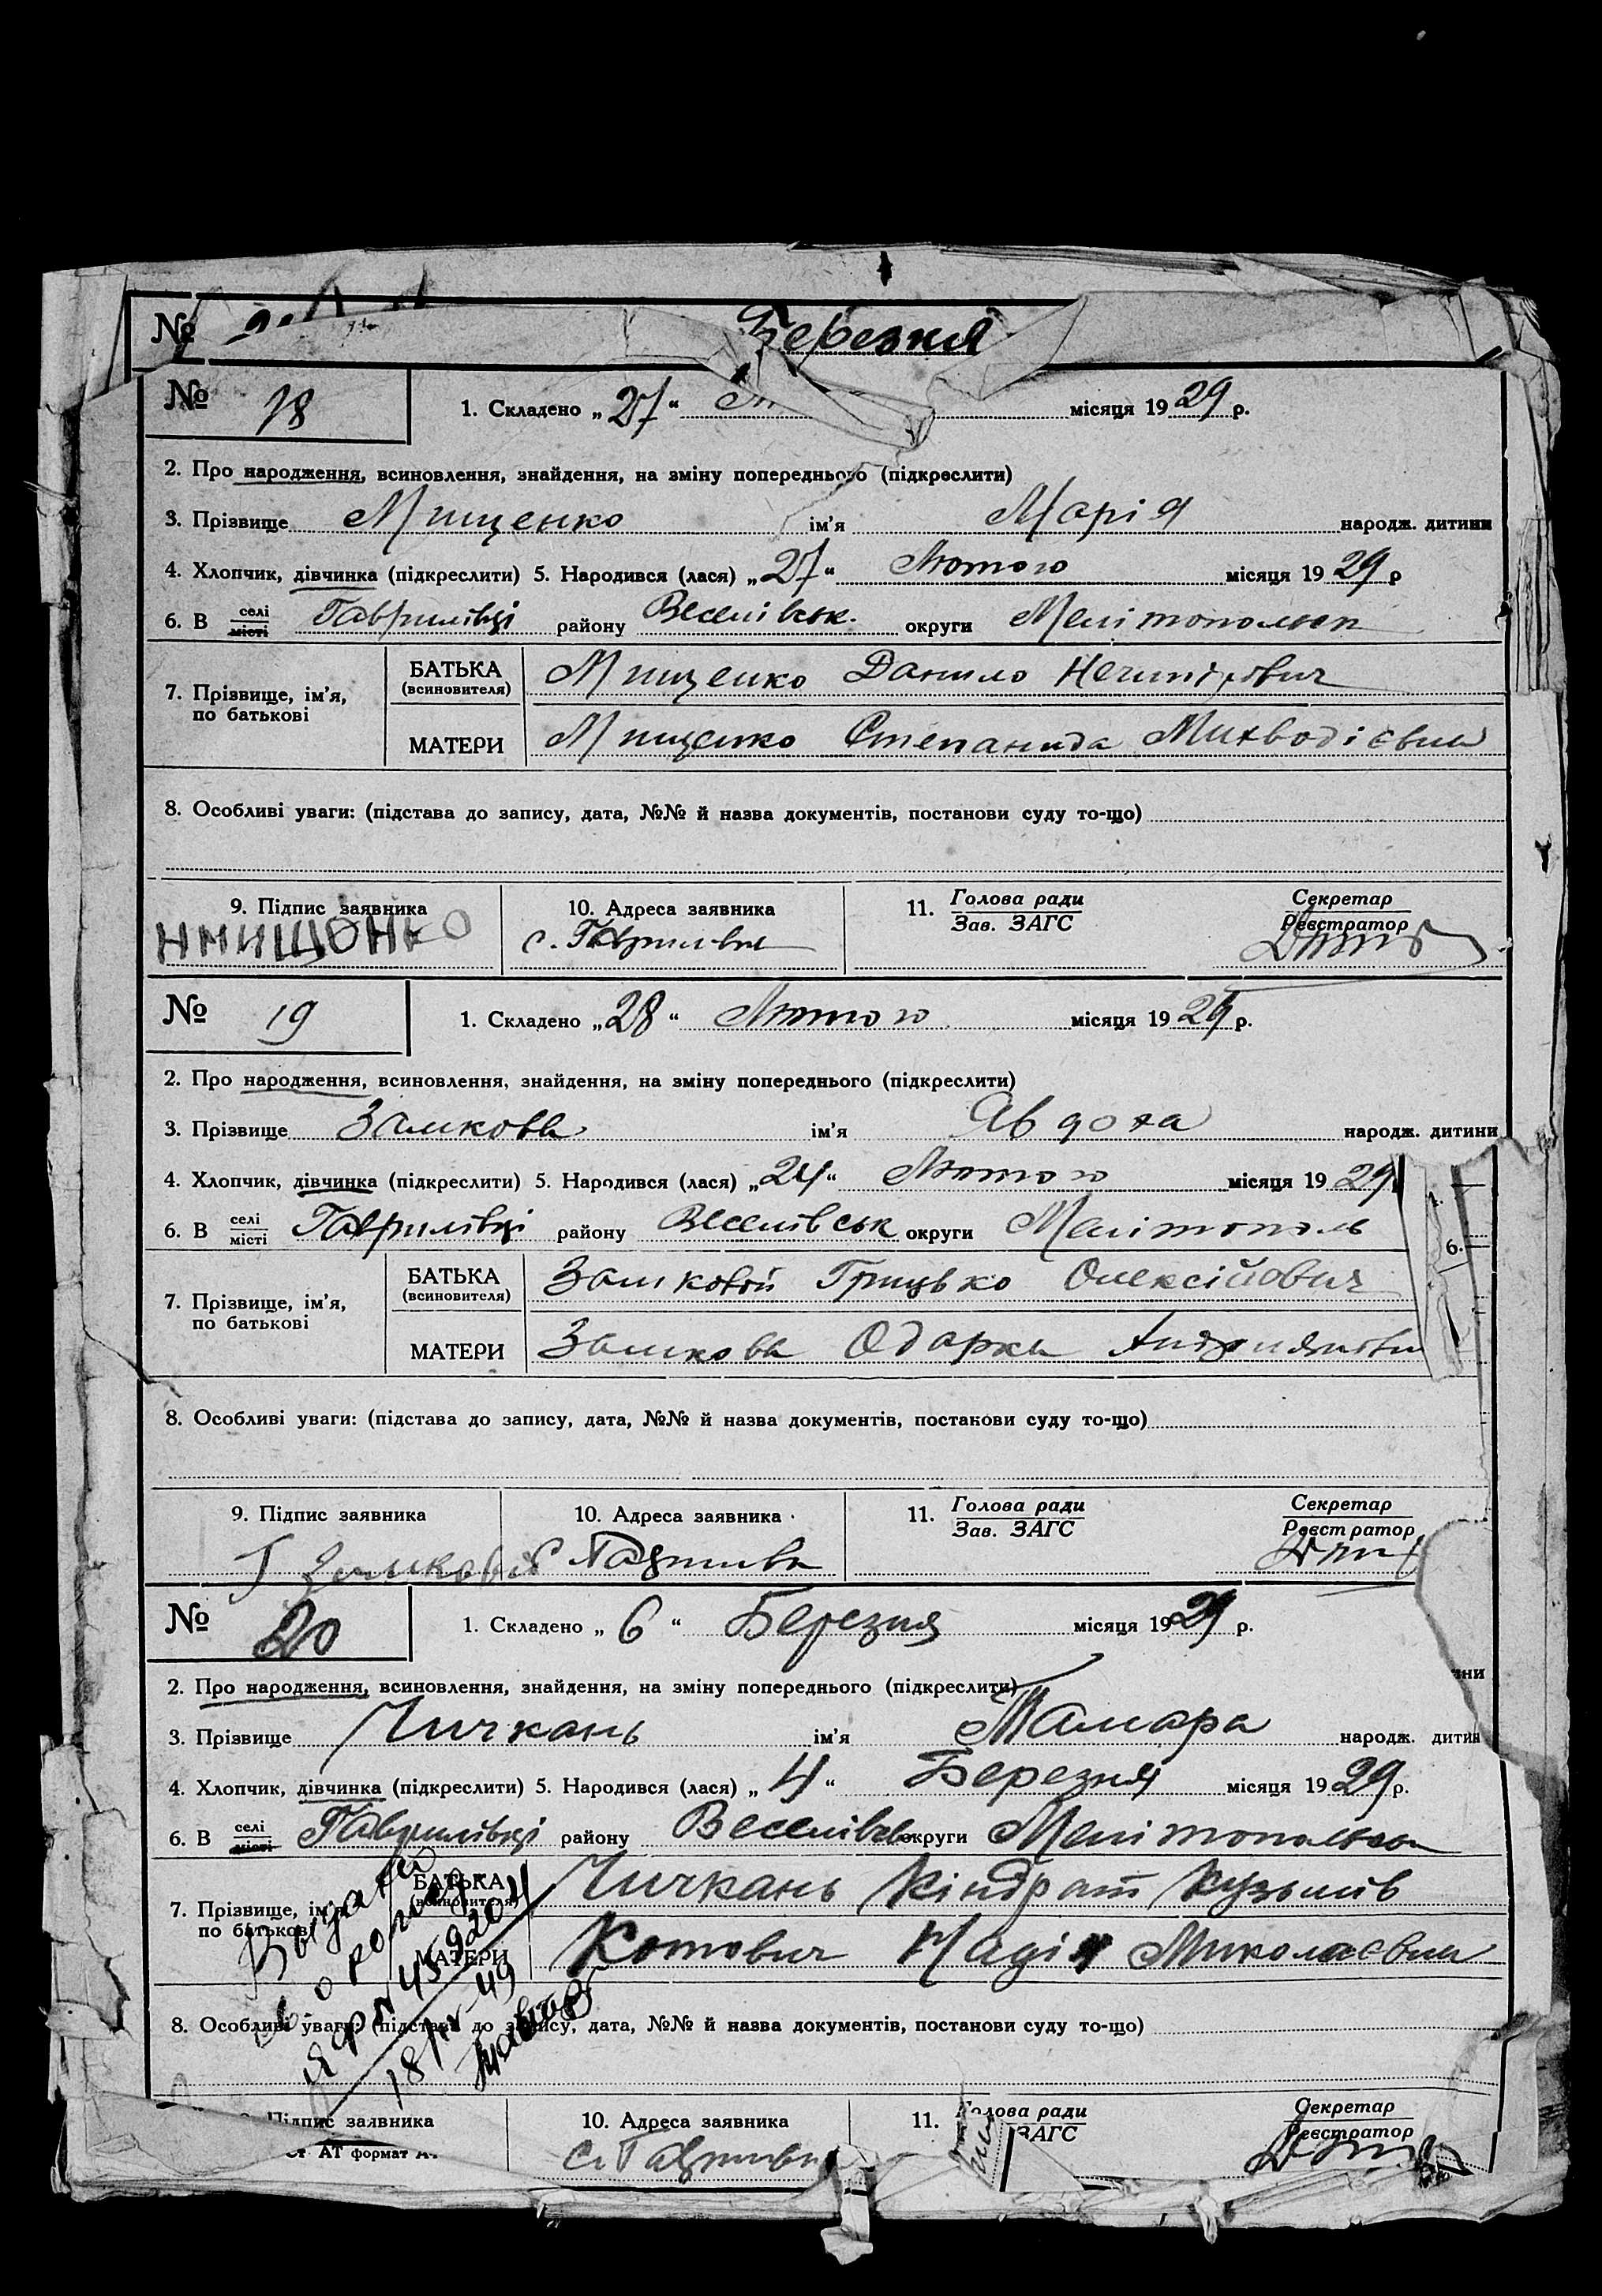 № Березня
№ 18 1. Складено „27“ місяця 1929 р.
2. Про народження, всиновлення, знайдення, на зміну попереднього (підкреслити)
3. Прізвище Мищенко ім'я Марія народж. дитини
4. Хлопчик, дівчинка (підкреслити) 5. Народився (лася) „27“ Лютого місяця 1929 р
6. В селі місті Гаврилівці району Веселівськ. округи Мелітопольск
7. Прізвище, ім'я, по батькові
БАТЬКА (всиновителя) Мищенко Данило
МАТЕРИ Мищенко Степанида
8. Особливі уваги: (підстава до запису, дата, №№ й назва документів, постанови суду то-що)
9. Підпис заявника 10. Адреса заявника 11. Голова ради Зав. ЗАГС Секретар Реєстратор
НМИЩОНКО с. Гаврилівка
№ 19 1. Складено „28“ Лютого місяця 1929 р.
2. Про народження, всиновлення, знайдення, на зміну попереднього (підкреслити)
3. Прізвище Замкова ім'я Явдоха народж. дитини
4. Хлопчик, дівчинка (підкреслити) 5. Народився (лася) „24“ Лютого місяця 1929
6. В селі місті Гаврилівці району Веселівськ округи Мелітополь
6.
7. Прізвище, ім'я, по батькові
БАТЬКА (всиновителя) Замковой Грицько Олексійович
МАТЕРИ Замкова Одарка
8. Особливі уваги: (підстава до запису, дата, №№ й назва документів, постанови суду то-що)
9. Підпис заявника 10. Адреса заявника 11. Голова ради Зав. ЗАГС Секретар Реєстратор
Г Замковой с Гаврилівка
№ 20 1. Складено „6“ Березня місяця 1929 р.
2. Про народження, всиновлення, знайдення, на зміну попереднього (підкреслити)
3. Прізвище Чичкань ім'я Тамара народж. дитин
4. Хлопчик, дівчинка (підкреслити) 5. Народився (лася) „4“ Березня місяця 1929 р.
6. В селі місті Гаврилівці району Веселівсь округи Мелітопольськ
7. Прізвище, ім'я, по батькові
БАТЬКА (всиновителя) Чичкань Кіндрат Кузьмів
МАТЕРИ Котович Надія Миколаєвна
8. Особливі уваги: (підстава до запису, дата, №№ й назва документів, постанови суду то-що)
Підпис заявника 10. Адреса заявника 11. Голова ради ЗАГС Секретар Реєстратор
с. Гаврилівка
АТ формат